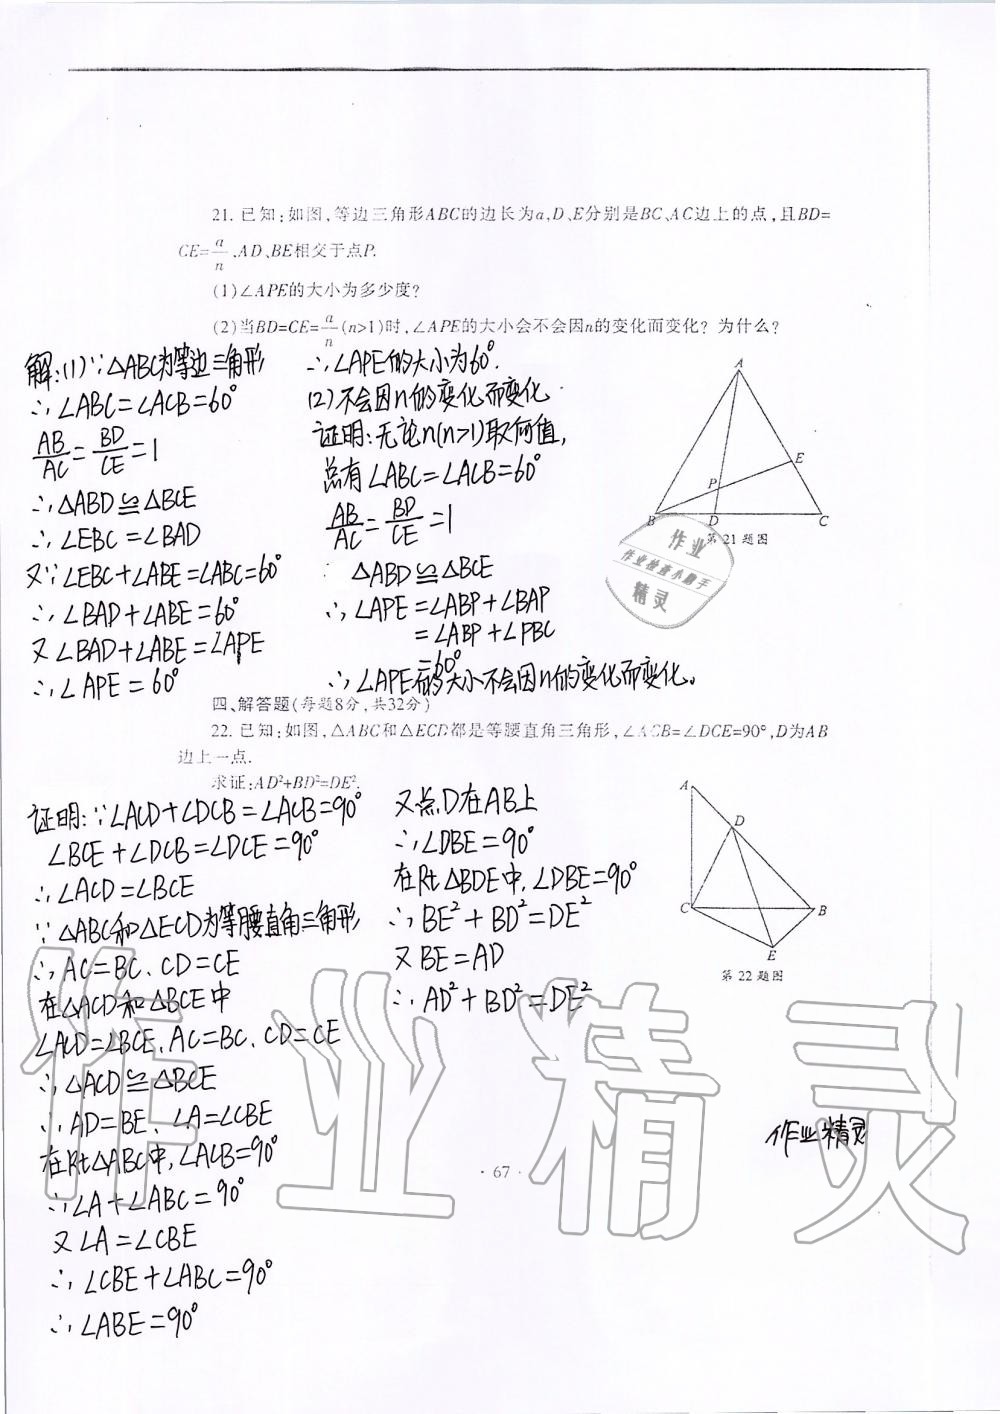 21. 已知:如图,等边三角形ABC的边长为a,D、E分别是BC、AC边上的点,且BD=
CE=a/n、AD、BE相交于点P.
(1)∠APE的大小为多少度?
(2)当BD=CE=a/n(n>1)时,∠APE的大小会不会因n的变化而变化?为什么?
解:(1)∵△ABC为等边三角形
∴∠ABC=∠ACB=60°
AB/AC=BD/CE=1
∴△ABD≌△BCE
∴∠EBC=∠BAD
又∵∠EBC+∠ABE=∠ABC=60°
∴∠BAD+∠ABE=60°
又∠BAD+∠ABE=∠APE
∴∠APE=60°
∴∠APE的大小为60°.
(2)不会因n的变化而变化
证明:无论n(n>1)取何值,
总有∠ABC=∠ACB=60°
AB/AC=BD/CE=1
△ABD≌△BCE
∴∠APE=∠ABP+∠BAP
=∠ABP+∠PBC
=60°
∴∠APE的大小不会因n的变化而变化。
A
E
P
B
D
C
第21题图
作业
作业检查小助手
精灵
四、解答题(每题8分,共32分)
22. 已知:如图,△ABC和△ECD都是等腰直角三角形,∠ACB=∠DCE=90°,D为AB
边上一点.
求证:AD²+BD²=DE².
证明:∵∠ACD+∠DCB=∠ACB=90°
∠BCE+∠DCB=∠DCE=90°
∴∠ACD=∠BCE
∵△ABC和△ECD为等腰直角三角形
∴AC=BC、CD=CE
在△ACD和△BCE中
∠ACD=∠BCE、AC=BC、CD=CE
∴△ACD≌△BCE
∴AD=BE、∠A=∠CBE
在Rt△ABC中,∠ACB=90°
∴∠A+∠ABC=90°
又∠A=∠CBE
∴∠CBE+∠ABC=90°
∴∠ABE=90°
又点D在AB上
∴∠DBE=90°
在Rt△BDE中,∠DBE=90°
∴BE²+BD²=DE²
又BE=AD
∴AD²+BD²=DE²
A
D
C
B
E
第22题图
作业精灵
作业精灵
·67·